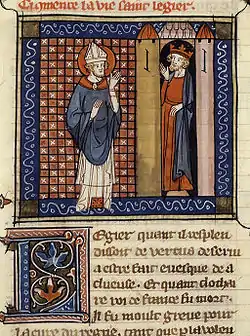 Ci comence la vie saint legier.
Legier quant il resplen
disoit de vertus deserui
a estre fait euesque de a
elucueuse. Et quant clothai
re roi de france fu mort.
Il fu moult greue pour
la cure du regne. tant que p la volen